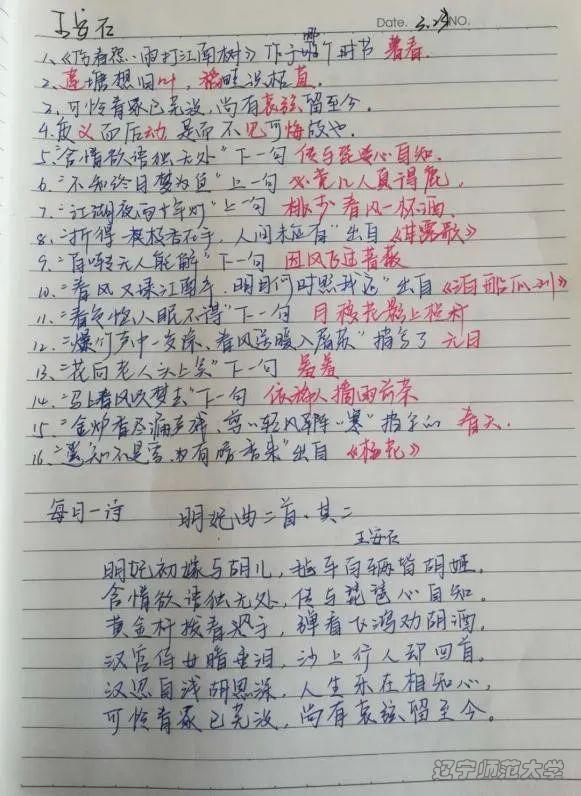 王安石
Date. 3.23 NO.
1、《伤春怨·雨打江南树》作于哪个时节 暮春.
2、莲塘想旧叶，稻畦识植直.
3、可怜青冢已芜没，尚有哀弦留至今.
4、度义而后动，是而不见可悔故也.
5、"含情欲语独无处"下一句 传与琵琶心自知.
6、"不知终日梦为鱼"上一句 必竟几人真得鹿.
7、"江湖夜雨十年灯"上一句 桃李春风一杯酒.
8、"折得一枝香在手，人间未应有"出自《甘露歌》
9、"百啭无人能解"下一句 因风飞过蔷薇
10、"春风又绿江南岸，明月何时照我还"出自《泊船瓜洲》
11、"春色恼人眠不得"下一句 月移花影上栏杆
12、"爆竹声中一岁除，春风送暖入屠苏"描写了 元日
13、"花向老人头上笑"下一句 羞羞
14、"马上春风吹梦去"下一句 依稀人摘雨前茶
15、"金炉香尽漏声残，剪剪轻风阵阵寒"描写的 春天.
16、"遥知不是雪，为有暗香来"出自《梅花》
每日一诗 明妃曲二首·其二
王安石
明妃初嫁与胡儿，毡车百辆皆胡姬.
含情欲语独无处，传与琵琶心自知.
黄金杆拨春风手，弹看飞鸿劝胡酒.
汉宫侍女暗垂泪，沙上行人却回首.
汉恩自浅胡恩深，人生乐在相知心，
可怜青冢已芜没，尚有哀弦留至今。
辽宁师范大学